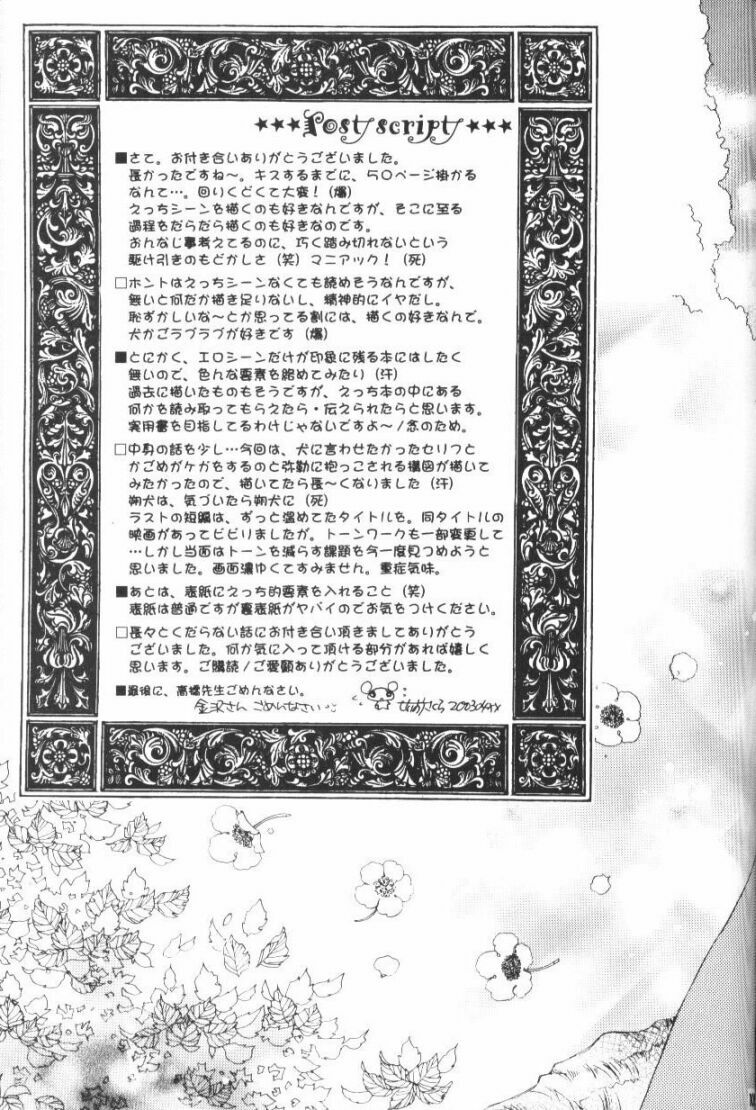 ★★★Post script★★★
■さて。お付き合いありがとうございました。
長かったですね〜。キスするまでに、50ページ掛かる
なんて…。回いくどくて大変！（爆）
えっちシーンを描くのも好きなんですが、そこに至る
過程をだらだら描くのも好きなのです。
おんなじ事考えてるのに、巧く踏み切れないという
駆け引きのもどかしさ（笑）マニアック！（死）
□ホントはえっちシーンなくても読めそうなんですが、
無いと何だか描き足りないし、精神的にイヤだし。
恥ずかしいな〜とか思ってる割には、描くの好きなんで。
犬かごラブラブが好きです（爆）
■とにかく、エロシーンだけが印象に残る本にはしたく
無いので、色んな要素を絡めてみたい（汗）
過去に描いたものもそうですが、えっち本の中にある
何かを読み取ってもらえたら・伝えられたらと思います。
実用書を目指してるわけじゃないですよ〜/念のため。
□中身の話を少し…今回は、犬に言わせたかったセリフと
かごめがケガをするのと弥勒に抱っこされる構図が描いて
みたかったので、描いてたら長〜くなりました（汗）
朔犬は、気づいたら朔犬に（死）
ラストの短編は、ずっと温めてたタイトルを。同タイトルの
映画があってビビりましたが。トーンワークも一部変更して
…しかし当面はトーンを減らす課題を今一度見つめようと
思いました。画面濃ゆくてすみません。重症気味。
■あとは、表紙にえっち的要素を入れること（笑）
表紙は普通ですが裏表紙がヤバイのでお気をつけください。
□長々とくだらない話にお付き合い頂きましてありがとう
ございました。何か気に入って頂ける部分があれば嬉しく
思います。ご購読/ご愛顧ありがとうございました。
■最後に、高橋先生ごめんなさい。
金沢さん ごめんなさい